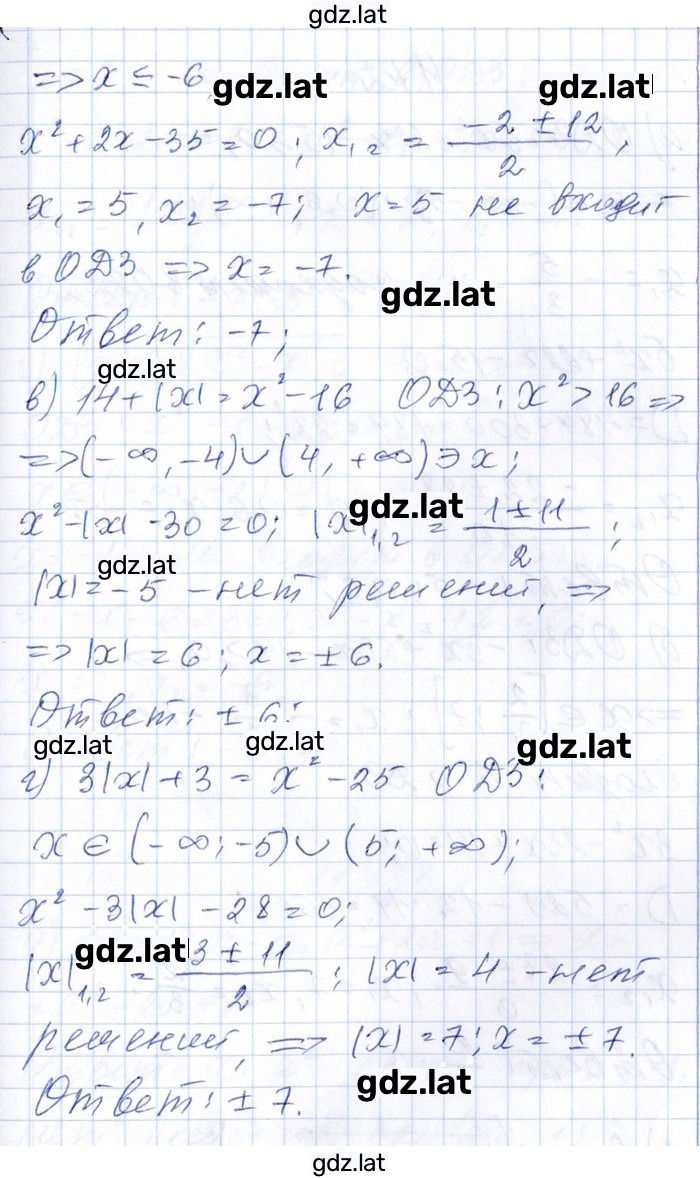 gdz.lat
=> x ≤ -6, gdz.lat gdz.lat
x² + 2x - 35 = 0; x₁,₂ = (-2 ± 12)/2,
x₁ = 5, x₂ = -7; x = 5 не входит
в ОДЗ => x = -7. gdz.lat
Ответ: -7;
gdz.lat
в) 14 + |x| = x² - 16 ОДЗ: x² > 16 =>
=> (-∞, -4) ∪ (4, +∞) ∋ x;
gdz.lat
x² - |x| - 30 = 0; |x|₁,₂ = (1 ± 11)/2;
gdz.lat
|x| = -5 - нет решений, =>
=> |x| = 6; x = ± 6.
Ответ: ± 6;
gdz.lat gdz.lat gdz.lat
г) 3|x| + 3 = x² - 25 ОДЗ:
x ∈ (-∞; -5) ∪ (5; +∞);
x² - 3|x| - 28 = 0;
gdz.lat
|x|₁,₂ = (3 ± 11)/2; |x| = 4 - нет
решений, => |x| = 7; x = ± 7.
Ответ: ± 7. gdz.lat
gdz.lat